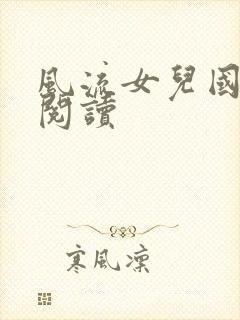 風流女兒國
閱讀
寒風凜